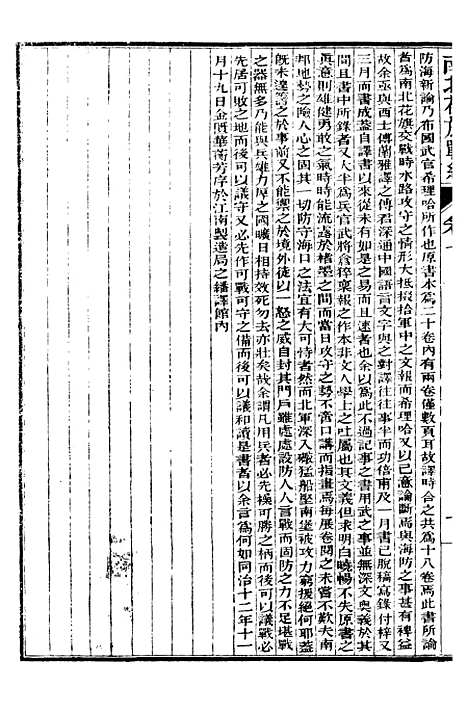 防海新論乃布國武官希理哈所作也原書本爲二十卷內有兩卷僅數頁耳故譯時合之共爲十八卷焉此書所論
者爲南北花旗交戰時水路攻守之情形大抵掇拾軍中之文報而希理哈又以己意論斷焉與海防之事甚有裨益
故余亟與西士傅蘭雅譯之傅君深通中國語言文字與之對譯往往事半而功倍甫及一月書已脫稿寫錄付梓又
三月而書成蓋自譯書以來從未有如是之易而且速者也余以爲此不過記事之書用武之事並無深文奧義於其
間且書中所錄者又大半爲兵官武將倉猝稟報之作本非文人學士之吐屬也其文義但求明白曉暢不失原書之
眞意則雄健勇敢之氣時時能流露於楮墨之間而當日攻守之勢不啻口講而指畫焉每展卷閱之未嘗不歎夫南
邦地勢之險人心之固其一切防守海口之法宜有大可恃者然而北軍深入礮猛船堅南堡被攻力窮援絕何
旣未遑籌之於事前又不能禦之於境外徒以一割之威自封其門戶雖處處設防人人言戰而固防之力不足堪戰
之器無多乃能與兵雄力厚之國曠日相持效死勿去亦壯矣哉故余謂凡用兵者必先操可勝之柄而後可以議戰必
先居可敗之地而後可以議守又必先作可戰可守之備而後可以議和讀是書者以余言爲何如同治十二年十一
月十九日金匱華蘅芳序於江南製造局之繙譯館內